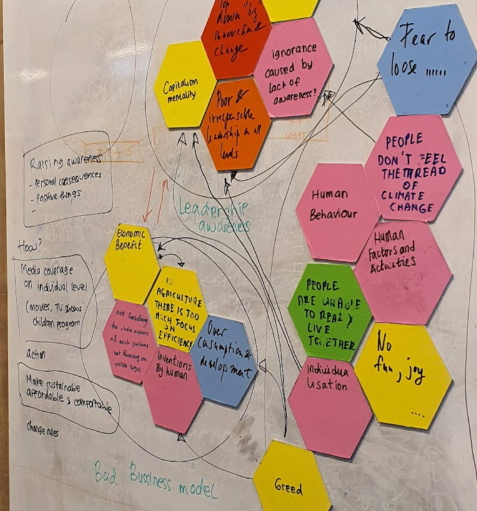 down by
change
Capitalism
mentality
ignorance
caused by
lack of
awareness?
Fear to
loose ......
Poor &
irresponsible
leadership in all
levels
PEOPLE
DON'T FEEL
THE THREAD
OF
CLIMATE
CHANGE
Raising awareness
- Personal consequences
- Positive things
-
Leadership
awareness
Human
Behaviour
Human
Factors and
Activities
Economic
Benefit
How?
Media coverage
on individual level
(movies, TV shows
children program)
action
Make sustainable
affordable & comfortable
change rules
IN
AGRICULTURE
THERE IS TOO
MUCH FOCUS
ON
EFFICIENCY
Inventions
By human
Over
consumption &
development
PEOPLE
ARE UNABLE
TO REALLY
LIVE
TOGETHER
Individual
isation
No
fun, joy
....
Greed
Bad Bussiness model